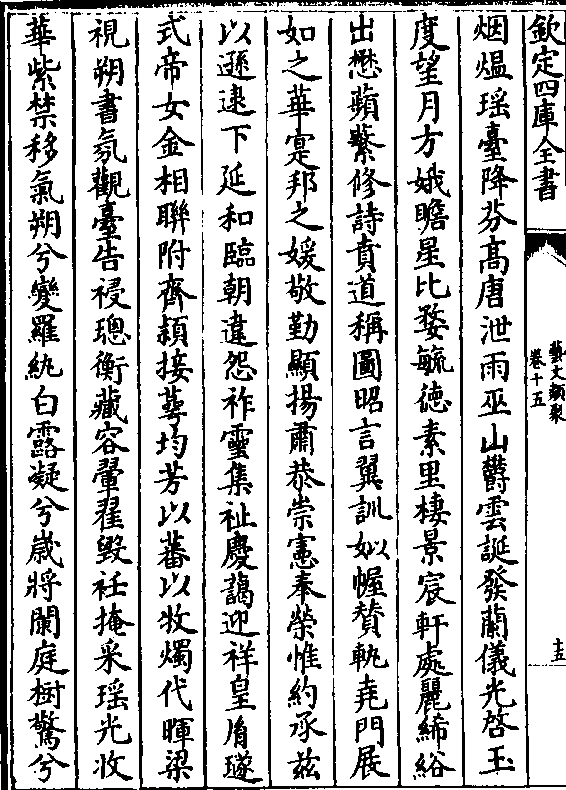 欽定四庫全書
烟煴瑶臺降芬高唐泄雨巫山欝雲誕發蘭儀光啓玉
度望月方娥瞻星比婺毓徳素里棲景宸軒處麗絺綌
出懋蘋蘩修詩賁道稱圖昭言翼訓姒幄賛軌堯門展
如之華寔邦之媛敬勤顯揚肅恭崇憲奉榮惟約承兹
以遜逮下延和臨朝違怨祚靈集祉慶藹迎祥皇胤璲
式帝女金相聯附齊頴接蕚均芳以蕃以牧燭代暉梁
視朔書氛觀臺告祲璁衡藏容翬翟毁衽掩采瑶光收
華紫禁移氣朔兮變羅紈白露凝兮嵗將闌庭樹驚兮
藝文類聚
卷十五
十五